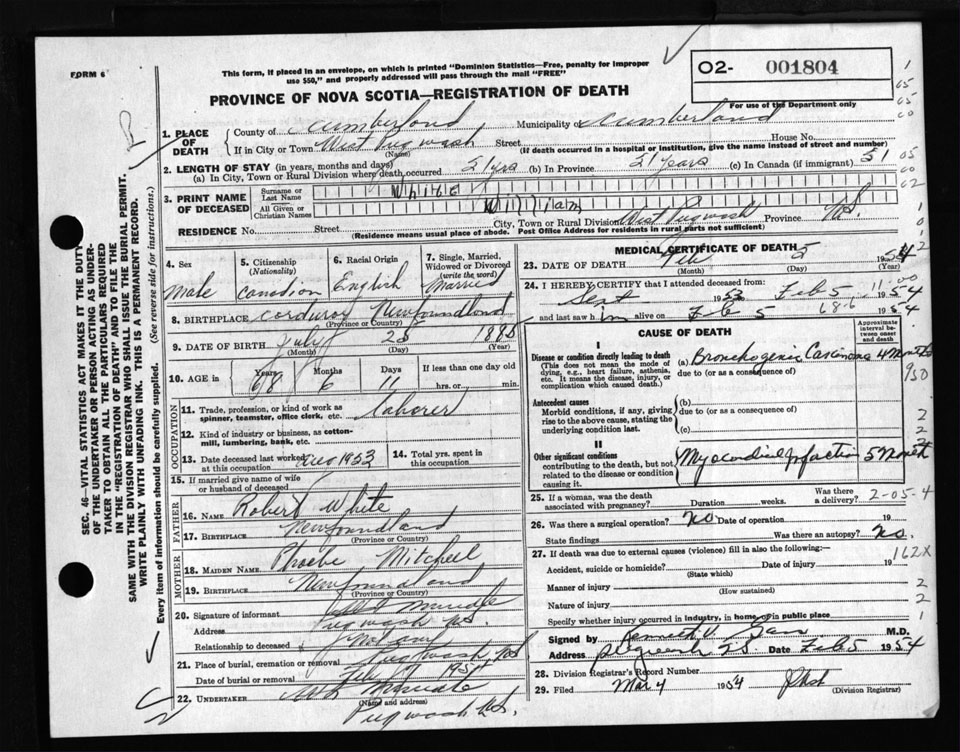 FORM 6
This form, if placed in an envelope, on which is printed "Dominion Statistics—Free, penalty for improper
use $50," and properly addressed will pass through the mail "FREE"
02- 001804
For use of the Department only
PROVINCE OF NOVA SCOTIA—REGISTRATION OF DEATH
1. PLACE OF DEATH
County of Cumberland Municipality of Cumberland
If in City or Town West Pugwash Street House No.
(Name) (If death occurred in a hospital or institution, give the name instead of street and number)
2. LENGTH OF STAY (in years, months and days)
(a) In City, Town or Rural Division where death occurred 21 yrs (b) In Province 21 years (c) In Canada (if immigrant) 51
3. PRINT NAME OF DECEASED
Surname or Last Name White
All Given or Christian Names William
RESIDENCE No. Street City, Town or Rural Division West Pugwash Province N.S.
(Residence means usual place of abode. Post Office Address for residents in rural parts not sufficient)
4. Sex
Male
5. Citizenship (Nationality)
Canadian
6. Racial Origin
English
7. Single, Married, Widowed or Divorced (write the word)
Married
8. BIRTHPLACE Corduroy Newfoundland
(Province or Country)
9. DATE OF BIRTH July 25 1885
(Month) (Day) (Year)
10. AGE in
Years 68 Months 6 Days 11
If less than one day old
hrs. or min.
OCCUPATION
11. Trade, profession, or kind of work as spinner, teamster, office clerk, etc. Laborer
12. Kind of industry or business, as cotton-mill, lumbering, bank, etc.
13. Date deceased last worked Dec 1953
14. Total yrs. spent in this occupation
15. If married give name of wife or husband of deceased
FATHER
16. NAME Robert White
17. BIRTHPLACE Newfoundland
(Province or Country)
MOTHER
18. MAIDEN NAME Phoebe Mitchell
19. BIRTHPLACE Newfoundland
(Province or Country)
20. Signature of informant
Address Pugwash N.S.
Relationship to deceased
21. Place of burial, cremation or removal Pugwash NS
Date of burial or removal Feb 1954
22. UNDERTAKER
(Name and address)
Pugwash N.S.
MEDICAL CERTIFICATE OF DEATH
23. DATE OF DEATH Feb 5 1954
(Month) (Day) (Year)
24. I HEREBY CERTIFY that I attended deceased from:
Sept 1953 Feb 5 1954
and last saw h im alive on Feb 5 1954
68-6-11-00
CAUSE OF DEATH
Approximate interval between onset and death
I
Disease or condition directly leading to death
(This does not mean the mode of dying, e.g., heart failure, asthenia, etc. It means the disease, injury, or complication which caused death.)
(a) Bronchogenic Carcinoma 4 Months
due to (or as a consequence of)
930
Antecedent causes
Morbid conditions, if any, giving rise to the above cause, stating the underlying condition last.
(b)
due to (or as a consequence of)
(c)
II
Other significant conditions
contributing to the death, but not related to the disease or condition causing it.
Myocardial Infarction 5 Months
25. If a woman, was the death associated with pregnancy? Duration weeks. Was there a delivery? 2-05-4
26. Was there a surgical operation? No Date of operation 19
State findings Was there an autopsy? No.
27. If death was due to external causes (violence) fill in also the following:—
162X
Accident, suicide or homicide? Date of injury 19
(State which)
Manner of injury
(How sustained)
Nature of injury
Specify whether injury occurred in industry, in home, or in public place
Signed by Kenneth V. M.D.
Address Pugwash N.S. Date Feb 5 1954
28. Division Registrar's Record Number
29. Filed Mar 4 1954
(Division Registrar)
SEC. 46—VITAL STATISTICS ACT MAKES IT THE DUTY
OF THE UNDERTAKER OR PERSON ACTING AS UNDER-
TAKER TO OBTAIN ALL THE PARTICULARS REQUIRED
IN THE "REGISTRATION OF DEATH" AND TO FILE THE
SAME WITH THE DIVISION REGISTRAR WHO SHALL ISSUE THE BURIAL PERMIT.
WRITE PLAINLY WITH UNFADING INK. THIS IS A PERMANENT RECORD.
Every item of information should be carefully supplied. (See reverse side for instructions.)